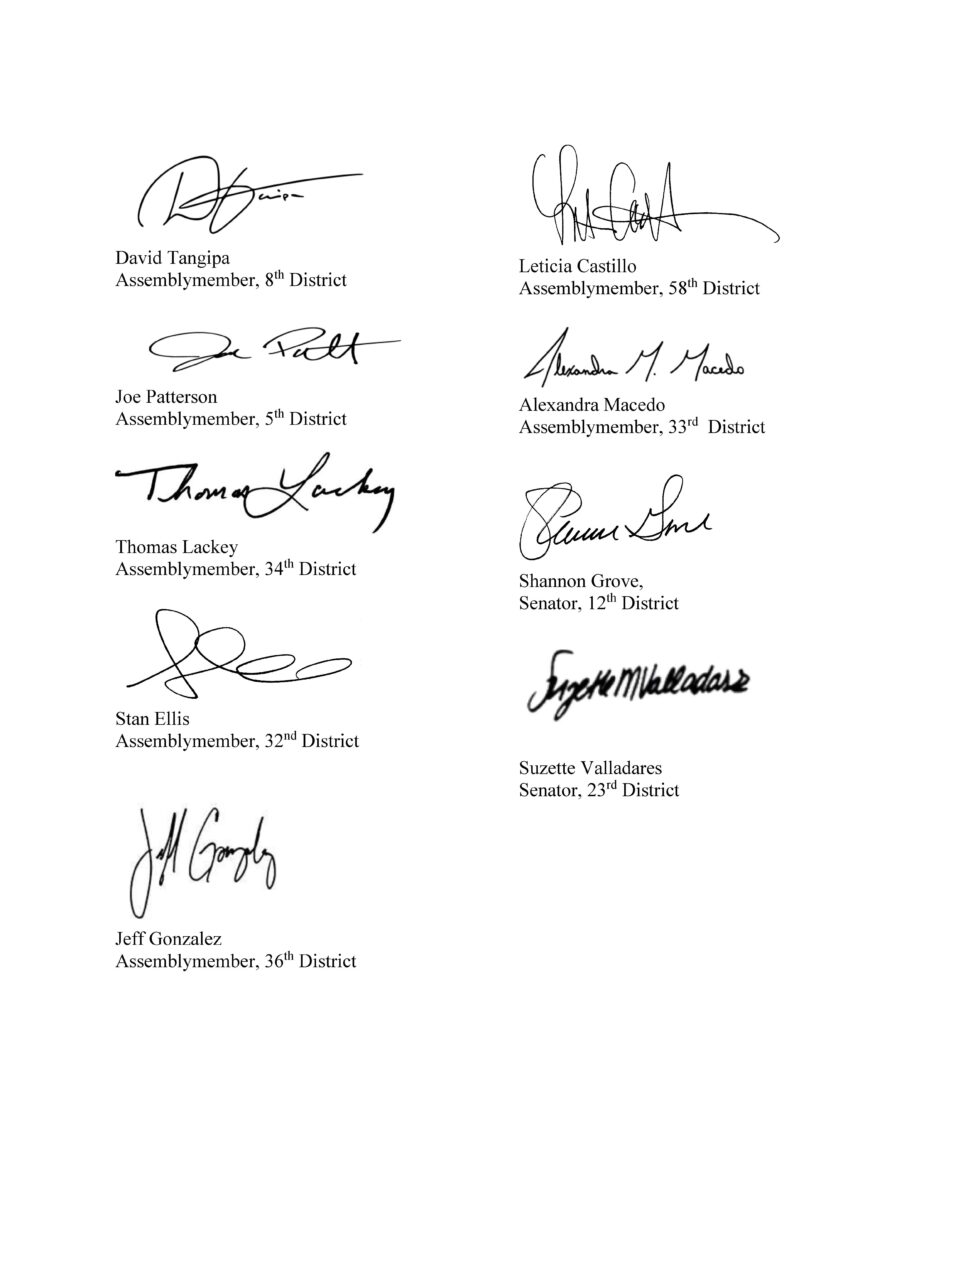 D Tangipa
David Tangipa
Assemblymember, 8th District
Joe Patt
Joe Patterson
Assemblymember, 5th District
Thomas Lackey
Thomas Lackey
Assemblymember, 34th District
Stan Ellis
Assemblymember, 32nd District
Jeff Gonzalez
Jeff Gonzalez
Assemblymember, 36th District
Leticia Castillo
Assemblymember, 58th District
Alexandra M. Macedo
Alexandra Macedo
Assemblymember, 33rd District
Shannon Grove
Shannon Grove,
Senator, 12th District
Suzette M Valladares
Suzette Valladares
Senator, 23rd District